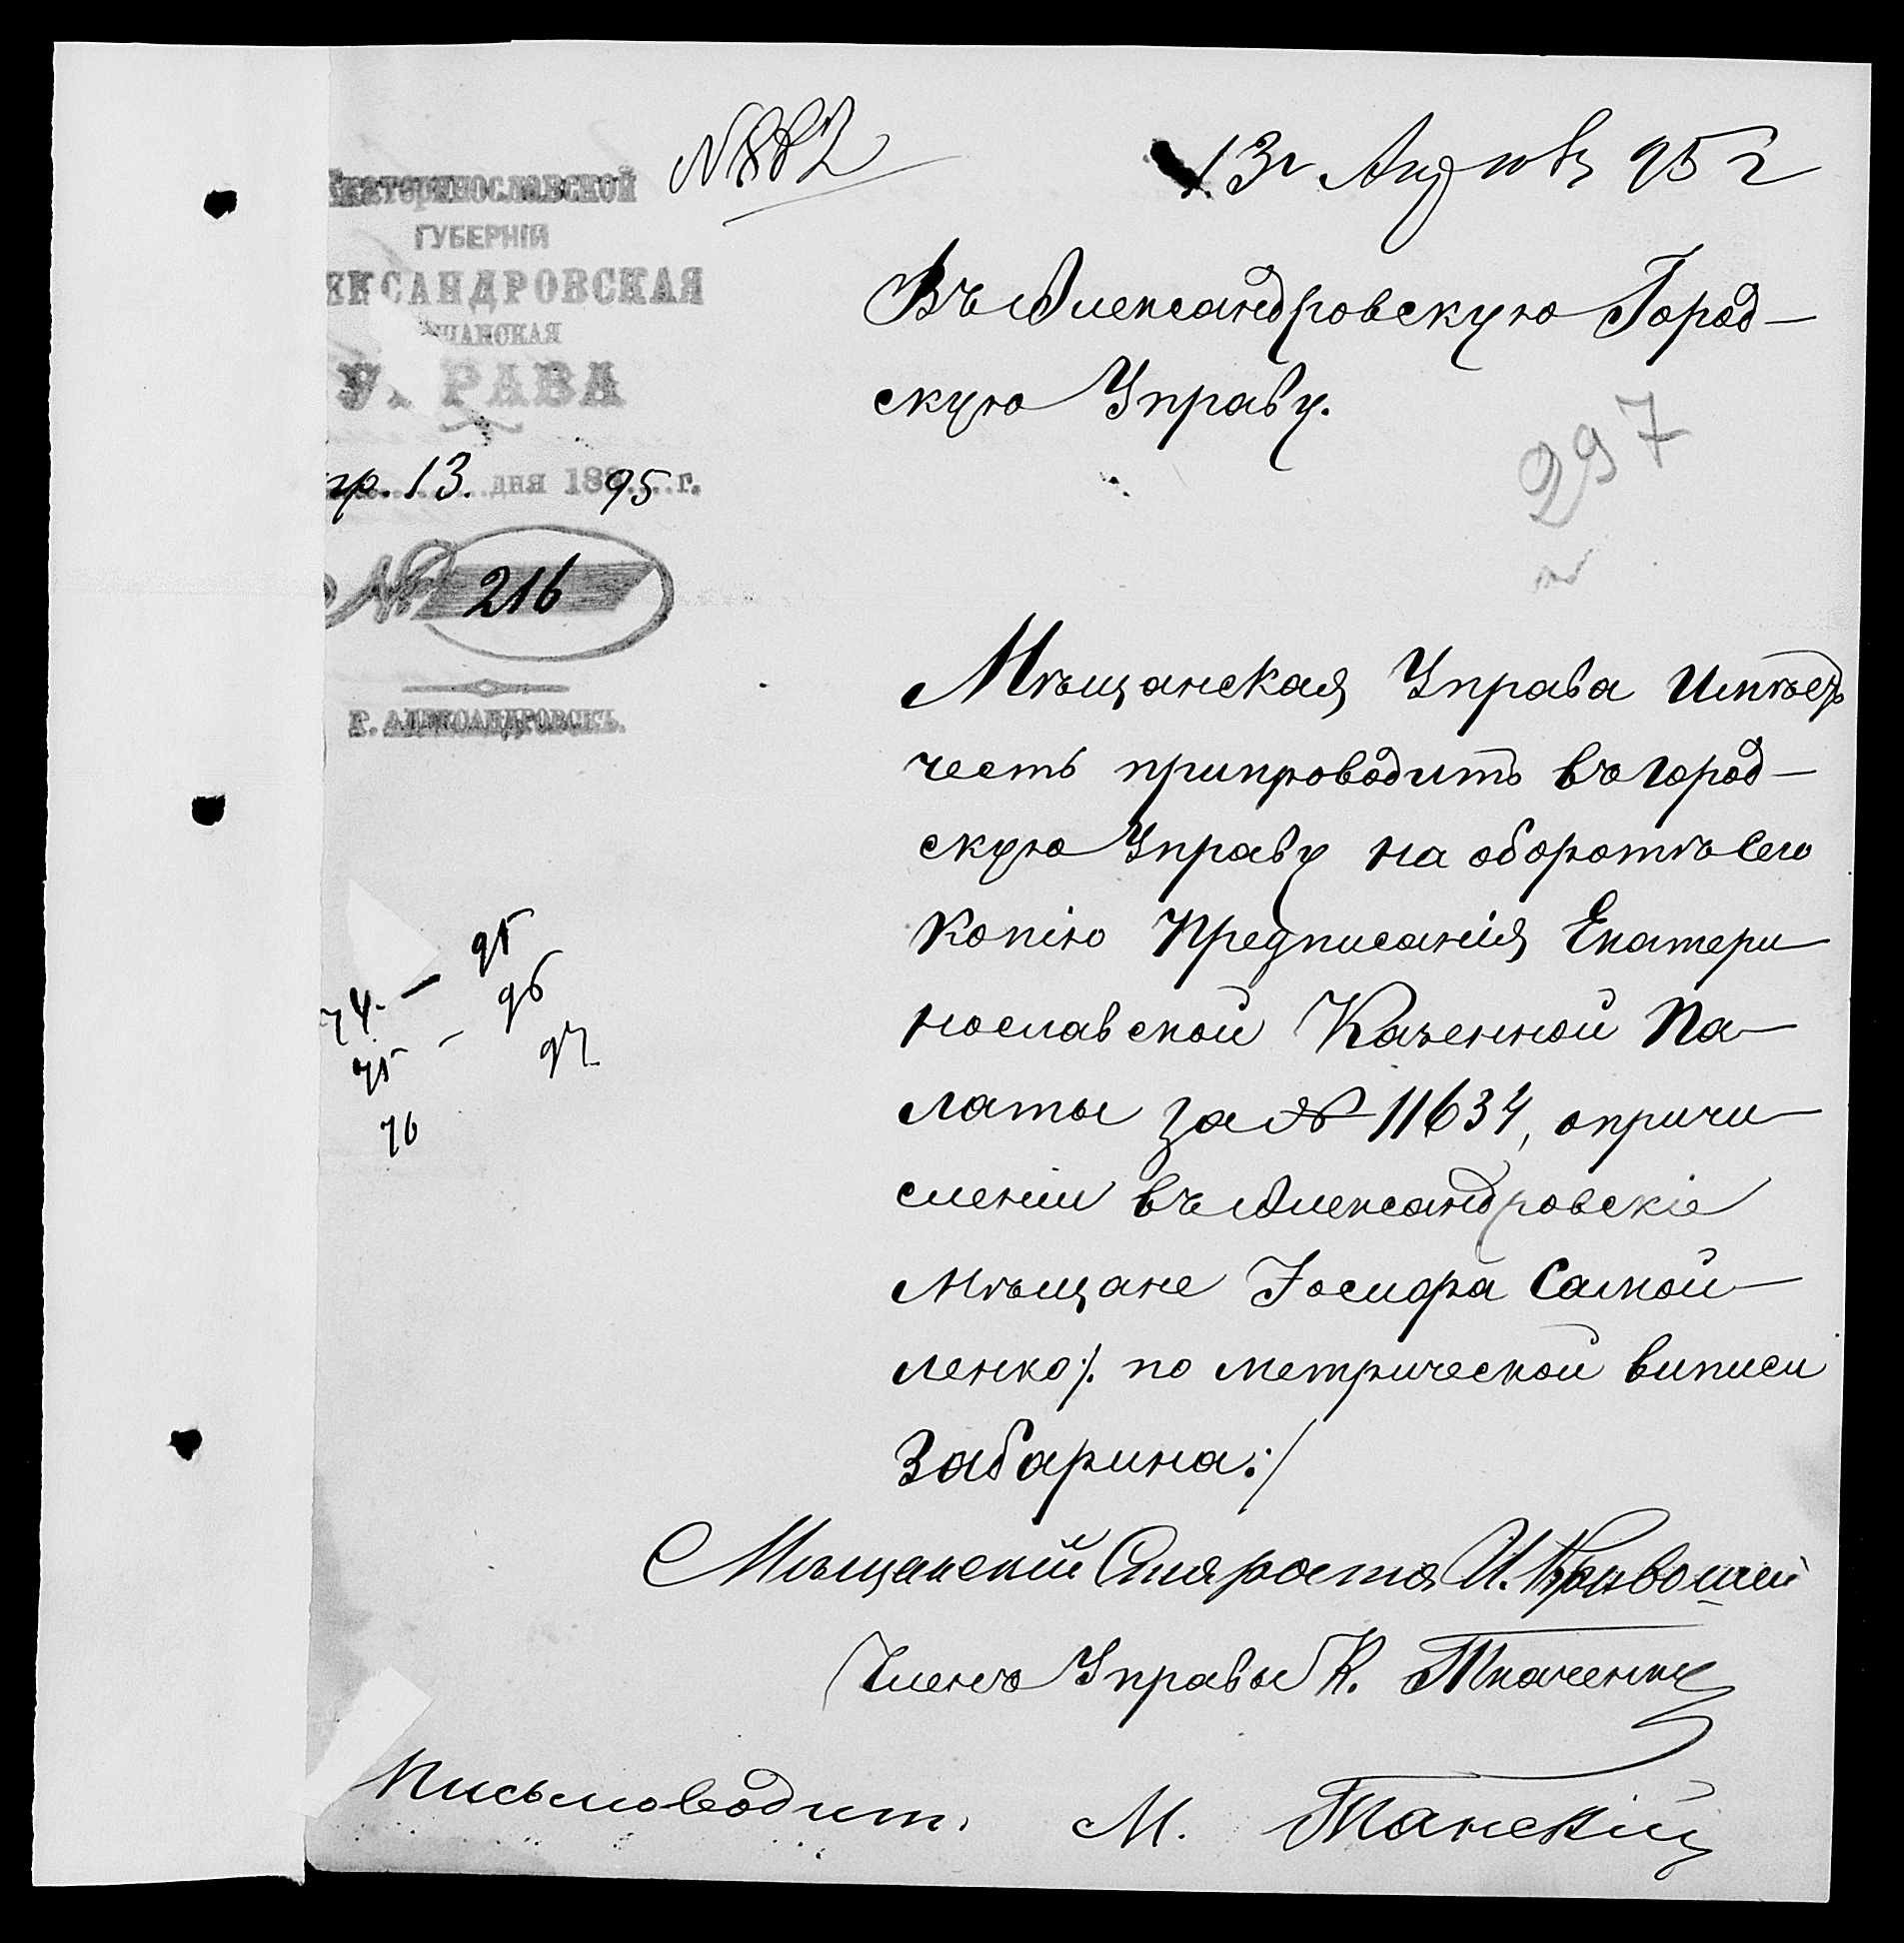 № 882
13 Апрѣля 95 г
Екатеринославской
ГУБЕРНІИ
ЕКСАНДРОВСКАЯ
ЩАНСКАЯ
УПРАВА
пр. 13. дня 188 95 г.
№ 216
Г. АЛЕКСАНДРОВСКЪ.
Въ Александровскую Город-
скую Управу.
297
Мѣщанская Управа имѣетъ
честь припроводить въ город-
скую Управу на оборотѣ сего
копію предписанія Екатери-
нославской Казенной Па-
латы за № 11634, о причи-
сленіи въ Александровскіе
мѣщане Іосифа Самой-
ленко /: по метрической виписи
Забарина :/
74 - 95
75 - 96
76 97
Мѣщанскій Староста И. Кривошей
Членъ Управы К. Ткаченко
Письмоводит. М. Танскій